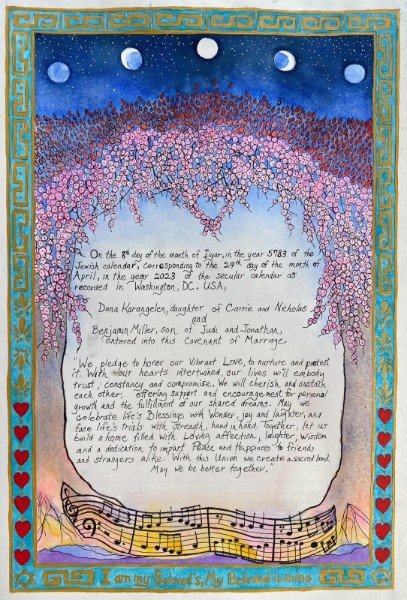 On the 8th day of the month of Iyar, in the year 5783 of the
Jewish calendar, corresponding to the 29th day of the month of
April, in the year 2023 of the secular calendar as
recorded in Washington, DC. USA,
Dana Karangelen, daughter of Carrie and Nicholas
and
Benjamin Miller, son of Judi and Jonathan,
entered into this Covenant of Marriage
"We pledge to honor our Vibrant Love, to nurture and protect
it. With our hearts intertwined, our lives will embody
trust, constancy and compromise. We will cherish and sustain
each other, offering support and encouragement for personal
growth and the fulfillment of our shared dreams. May we
celebrate life's Blessings with Wonder, joy and laughter, and
face life's trials with strength, hand in hand. Together, let us
build a home filled with Loving affection, laughter, wisdom
and a dedication to impart Peace and Happiness to friends
and strangers alike. With this Union we create a sacred bond.
May we be better together."
I am my Beloved's, My Beloved is mine